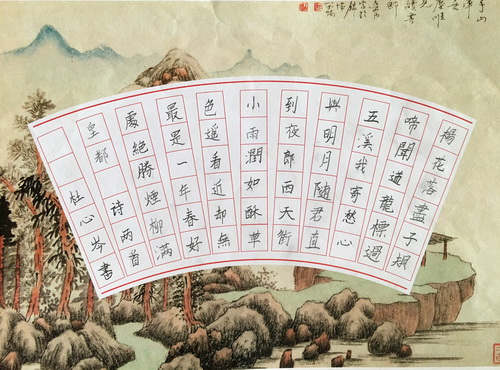 楊花落盡子規
啼聞道龍標過
五溪我寄愁心
與明月隨君直
到夜郎西天街
小雨潤如酥草
色遥看近却無
最是一年春好
處絶勝煙柳滿
皇都 詩兩首
杜心岑書